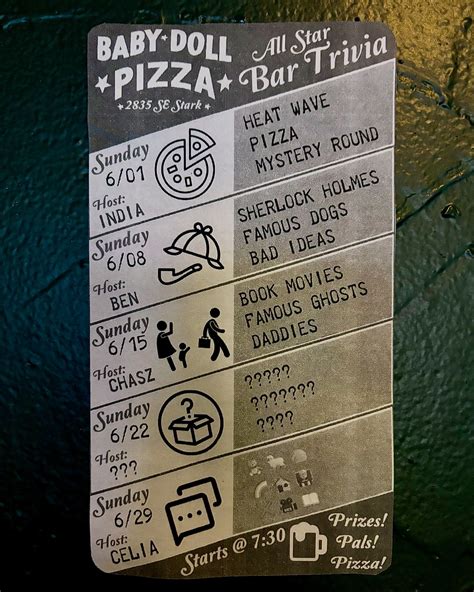 BABY★DOLL
★PIZZA★
★2835 SE Stark★
All Star
Bar Trivia
Sunday
6/01
Host:
INDIA
HEAT WAVE
PIZZA
MYSTERY ROUND
Sunday
6/08
Host:
BEN
SHERLOCK HOLMES
FAMOUS DOGS
BAD IDEAS
Sunday
6/15
Host:
CHASZ
BOOK MOVIES
FAMOUS GHOSTS
DADDIES
Sunday
6/22
Host:
???
?
?????
???????
????
Sunday
6/29
Host:
CELIA
Starts @ 7:30
Prizes!
Pals!
Pizza!